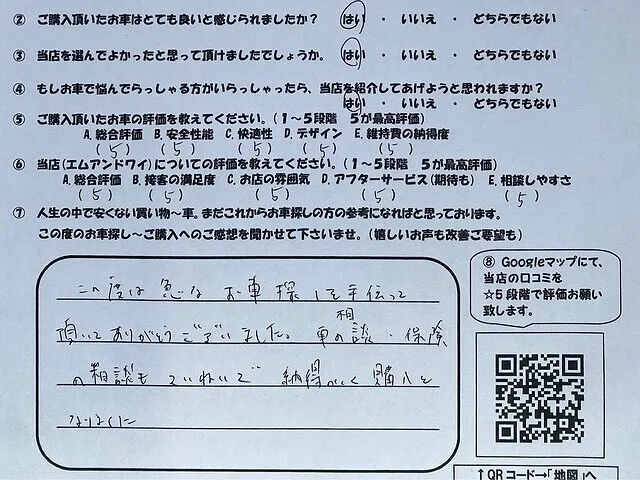 ② ご購入頂いたお車はとても良いと感じられましたか？ はい ・ いいえ ・ どちらでもない
③ 当店を選んでよかったと思って頂けましたでしょうか。 はい ・ いいえ ・ どちらでもない
④ もしお車で悩んでらっしゃる方がいらっしゃったら、当店を紹介してあげようと思われますか？
はい ・ いいえ ・ どちらでもない
⑤ ご購入頂いたお車の評価を教えてください。(１～５段階 ５が最高評価)
A. 総合評価 B. 安全性能 C. 快適性 D. デザイン E. 維持費の納得度
(5) (5) (5) (5) (5)
⑥ 当店(エムアンドワイ)についての評価を教えてください。(１～５段階 ５が最高評価)
A. 総合評価 B. 接客の満足度 C. お店の雰囲気 D. アフターサービス(期待も) E. 相談しやすさ
(5) (5) (5) (5) (5)
⑦ 人生の中で安くない買い物～車。まだこれからお車探しの方の参考になればと思っております。
この度のお車探し～ご購入へのご感想を聞かせて下さいませ。(嬉しいお声も改善ご要望も)
この度は急なお車探しを手伝って
頂いてありがとうございました。車の相談・保険
の相談もていねいで 納得がいく購入を
⑧ Googleマップにて、
当店の口コミを
☆５段階で評価お願い
致します。
↑QRコード→「地図」へ